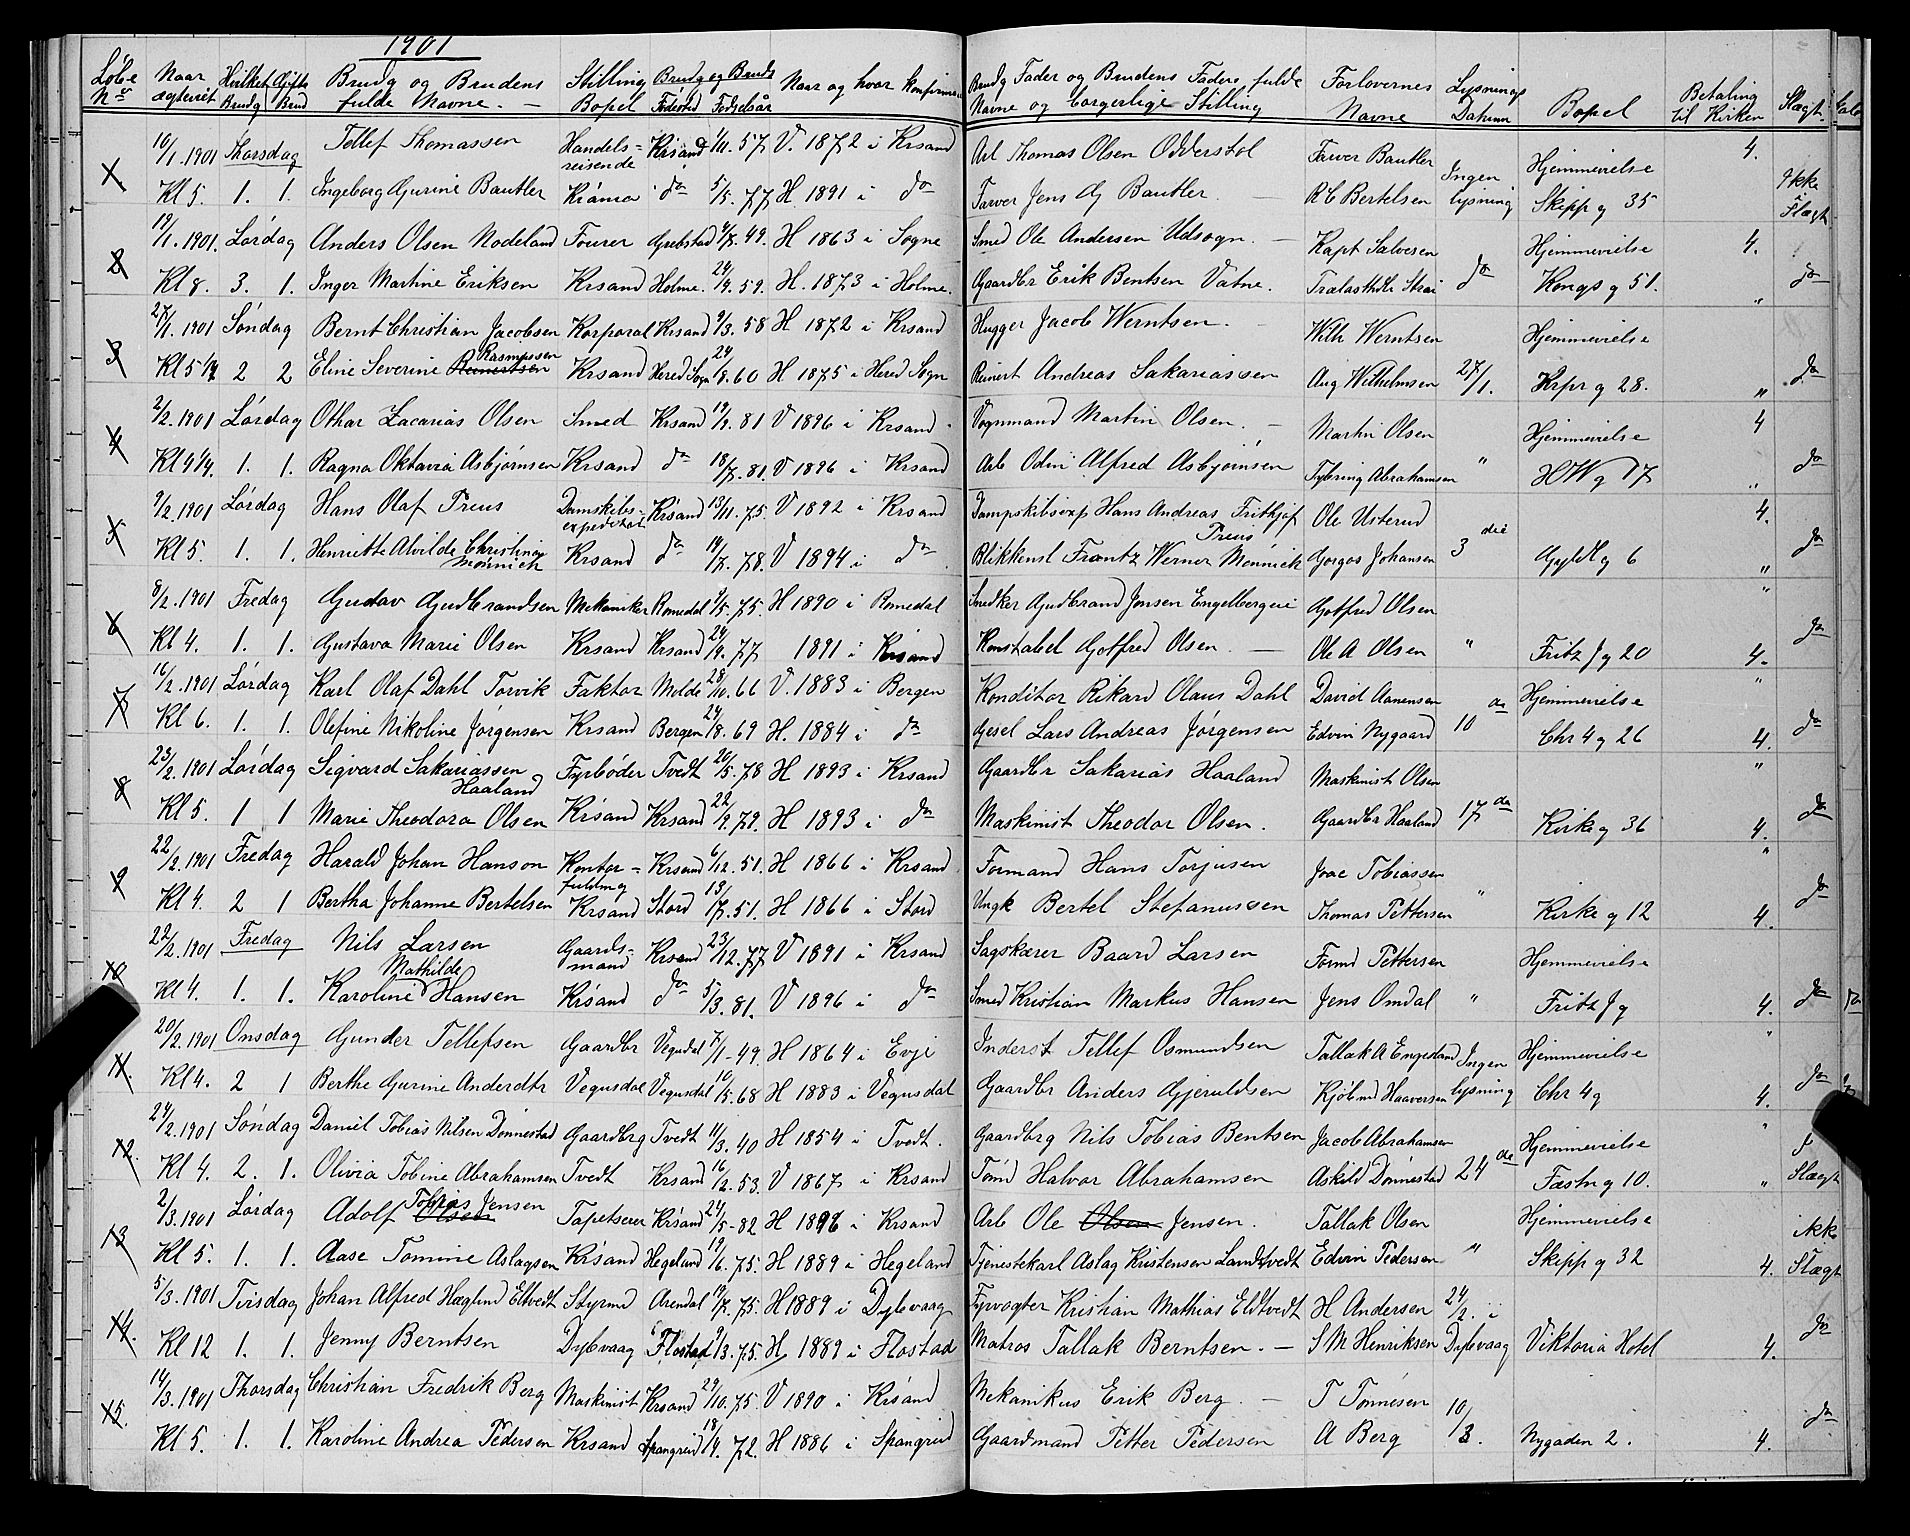 1901
Løbe Nr | Naar ægteviet | Hvilket Gifte Brudg Brud | Brudg og Brudens fulde Navne. | Stilling Bopel | Brudg og Bruds Fødested Fødselsår | Naar og hvor konfirm | Brudg Fader og Brudens Faders fulde Navne og borgerlige Stilling | Forlovernes Navne | Lysnings Datum | Bopel | Betaling til Kirken | Slægt
1 | 10/1. 1901 | Thorsdag | Tellef Thomassen | Handelsreisende | Krsand | 1/11. 57 | V. 1872 i Krsand | Arb Thomas Olsen Odderstøl | Farver Bautler | Ingen | Hjemmevielse | 4.
Kl 5. | 1. | 1. | Ingeborg Gurine Bautler | Krsand | do | 5/5. 77 | H. 1891 i do | Farver Jens Bautler | R C Bertelsen | lysning | Skipp g 35 | Ikke Slægt
2 | 19/1. 1901. | Lørdag | Anders Olsen Nodeland | Fourer | Grebstad | 4/8. 49. | H 1863 i Søgne | Smed Ole Andersen Udsogn. | Kapt Salvesen | Hjemmevielse | 4.
Kl 8. | 3. | 1. | Inger Martine Eriksen | Krsand | Holme. | 24/9. 59. | H. 1873 i Holme. | Gaardbr Erik Bentsen Vatne. | Trælasthdlr Strai | do | Kongs g 51. | " | do
3 | 27/1. 1901 | Søndag | Bernt Christian Jacobsen | Korporal | Krsand | 9/3. 58 | H 1872 i Krsand | Hugger Jacob Werntsen. | Wilh Werntsen | Hjemmevielse
Kl 5 1/2 | 2 | 2 | Eline Severine Reinertsen Rasmussen | Krsand | Hered Sogn | 24/8. 60 | H 1875 i Hered Sogn | Reinert Andreas Sakariassen | Aug Wilhelmsen | 27/1. | Krpr g 28. | " | do
4 | 2/2. 1901 | Lørdag | Othar Zacarias Olsen | Smed | Krsand | 19/2. 81 | V 1896 i Krsand | Vognmand Martin Olsen. | Martin Olsen | Hjemmevielse | 4
Kl 4 1/4. | 1. | 1. | Ragna Oktavia Asbjørnsen | Krsand | do | 18/7. 81. | V 1896 i Krsand | Arb Odin Alfred Asbjørnsen | Tybring Abrahamsen | " | H W g 17 | " | do
5 | 9/2. 1901 | Lørdag | Hans Olaf Preus | Damskibsexpeditør | Krsand | 13/11. 75. | V 1892 i Krsand | Dampskibsexp Hans Andreas Frithjof Preus | Ole Usterud | 4.
Kl 5. | 1. | 1. | Henriette Alvilde Christine Mønnich | Krsand | do | 14/7. 78. | V 1894 i do | Blikkensl Frantz Werner Mønnich | Gorgas Johansen | 3 die | Gyldl g 6 | " | do
6 | 8/2. 1901 | Fredag | Gustav Gudbrandsen | Mekaniker | Romedal | 9/5. 75. | H 1890 i Romedal | Snedker Gudbrand Jonsen Engelbergei | Gotfred Olsen | "
Kl 4. | 1. | 1. | Gustava Marie Olsen | Krsand | Krsand | 24/9. 77 | 1891 i Krsand | Konstabel Gotfred Olsen. | Ole A Olsen | " | Fritz J g 20 | 4. | do
7 | 16/2. 1901 | Lørdag | Karl Olaf Dahl Torvik | Faktor | Molde | 28/10. 66 | V. 1883 i Bergen | Konditor Rikard Olaus Dahl | David Aanensen | Hjemmevielse | "
Kl 6. | 1. | 1. | Olefine Nikoline Jørgensen | Krsand | Bergen | 24/8. 69 | H. 1884 i do | Gjesel Lars Andreas Jørgensen | Edvin Nygaard | 10 de | Chr 4 g 26 | 4. | do
8 | 23/2. 1901 | Lørdag | Sigvard Sakariassen Haaland | Fyrbøder | Tvedt | 20/5. 78 | H 1893 i Krsand | Gaardbr Sakarias Haaland | Maskinist Olsen | "
Kl 5. | 1 | 1 | Marie Theodora Olsen | Krsand | Krsand | 22/9. 79. | H 1893 i do | Maskinist Theodor Olsen. | Gaardbr Haaland | 17 de | Kirke g 36 | 4. | do
9 | 22/2. 1901 | Fredag | Harald Johan Hanson | Kontorfuldmg | Krsand | 6/12. 51. | H 1866 i Krsand | Formand Hans Torjusen | Joac Tobiassen | "
Kl 4. | 2 | 1 | Bertha Johanne Bertelsen | Krsand | Stord | 13/7. 51. | H 1866 i Stord | Ungk Bertel Stefanussen | Thomas Pettersen | " | Kirke g 12 | 4. | do
10 | 22/2. 1901 | Fredag | Nils Larsen | Gaardsmand | Krsand | 23/12. 77 | V 1891 i Krsand | Sagskærer Baard Larsen | Formd Pettersen | Hjemmevielse
Kl 4. | 1. | 1. | Karoline Mathilde Hansen | Krsand | do | 5/3. 81. | V 1896 i do | Smed Kristian Markus Hansen | Jens Omdal | " | Fritz J g | 4. | do
11. | 20/2. 1901 | Onsdag | Gunder Tellefsen | Gaardbr | Vegusdal | 7/1 - 49. | H 1864 i Evje | Inderst Tellef Osmundsen | Tallak A Engesland | Ingen | Hjemmevielse | "
Kl 4. | 2 | 1 | Berthe Gurine Andersdtr | Vegusdal | Vegusdal | 10/5. 68 | H 1883 i Vegusdal | Gaardbr Anders Gjeruldsen | Kjøbmd Haaversen | lysning | Chr 4 g | 4. | do
12. | 24/2. 1901 | Søndag | Daniel Tobias Nilsen Dønnestad | Gaardbrg | Tvedt | 11/3. 40 | H 1854 i Tvedt. | Gaardbrg Nils Tobias Bentsen | Jacob Abrahamsen | Hjemmevielse | "
Kl 4. | 2. | 1. | Olivia Tobine Abrahamsen | Tvedt | Krsand | 16/2. 53. | V 1867 i Krsand | Tømd Halvor Abrahamsen | Askild Dønnestad | 24 de | Fæstn g 10. | " | Slægt
13 | 2/3. 1901 | Lørdag | Adolf Olsen Tobias Jensen | Tapetserer | Krsand | 24/5 - 82 | H 1896 i Krsand | Arb Ole Olsen Jensen. | Tallak Olsen | Hjemmevielse | ikke
Kl 5. | 1. | 1. | Aase Tomine Aslagsen | Krsand | Hegeland | 19/6. 75. | H 1889 i Hegeland | Tjenestekarl Aslag Kristensen Landtvedt | Edvin Pedersen | " | Skipp g 32 | 4. | Slægt
14. | 5/3. 1901 | Tirsdag | Johan Alfred Hæglund Eltvedt | Styrmd | Arendal | 19/7. 75. | H 1889 i Dybvaag | Fyrvogter Kristian Mathias Eldtvedt | H Andersen | 24/2. i
Kl 12 | 1. | 1. | Jenny Berntsen | Dybvaag | Flostad | 9/3. 75. | H 1889 i Flostad | Matros Tallak Berntsen. | S M Henriksen | Dybvaag | Viktoria Hotel | 4. | do
15. | 14/3. 1901 | Thorsdag | Christian Fredrik Berg | Maskinist | Krsand | 29/10. 75. | V 1890 i Krsand | Mekanikus Erik Berg. | T Tønnesen | 10
Kl 5. | 1. | 1. | Karoline Andrea Pedersen | Krsand | Spangreid | 18/4. 72. | H 1886 i Spangreid | Gaardmand Petter Pedersen | A Berg | /3. | Nygaden 2. | 4. | do